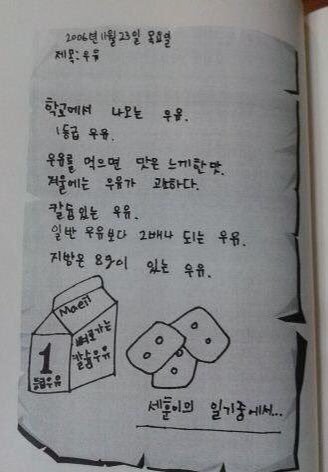 2006년 11월 23일 목요일
제목: 우유
학교에서 나오는 우유.
1등급 우유.
우유를 먹으면 맛은 느끼한 맛.
겨울에는 우유가 고소하다.
칼슘있는 우유.
일반 우유보다 2배나 되는 우유.
지방은 8g이 있는 우유.
Maeil
뼈로가는
칼슘우유
1
등급우유
세훈이의 일기중에서...